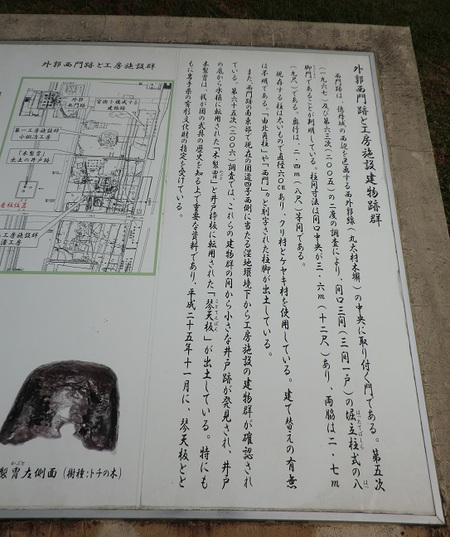 外郭西門跡と工房施設建物跡群
西門跡は、徳丹城の西辺を区画する西外郭線（丸太材木塀）の中央に取り付く門である。第五次
（一九六七）及び第六三次（二〇〇五）の二度の調査により、間口三間（三間一戸）の掘立柱式の八
脚門であることが判明している。柱間寸法は間口中央が三・六ｍ（十二尺）あり、両脇は二・七ｍ
（九尺）である。奥行は、二・四ｍ（八尺）等間である。
現存する柱は太いもので直径六〇㎝あり、クリ材とケヤキ材を使用している。建て替えの有無
は不明である。「由北西柱」や「西門」と刻字された柱脚が出土している。
また、西門跡の南東部で現在の国道四号西側に当たる湿地環境下から工房施設の建物群が確認され
ている。第六十五次（二〇〇六）調査では、これらの建物群の間から小さな井戸跡が発見され、井戸
の底から水桶に転用された「木製冑」と井戸枠板に転用された「琴天板」が出土している。特にも
木製冑は、我が国の武具の歴史を知る上で重要な資料であり、平成二十五年十一月に、琴天板とと
もに岩手県の有形文化財の指定を受けている。
外郭西門跡と工房施設群
外郭
西門跡
官衙を構成する
建物跡
第一工房施設群
小鍛冶工房
【木製冑】
出土の井戸跡
工房施設群
製冑左側面（樹種：トチの木）